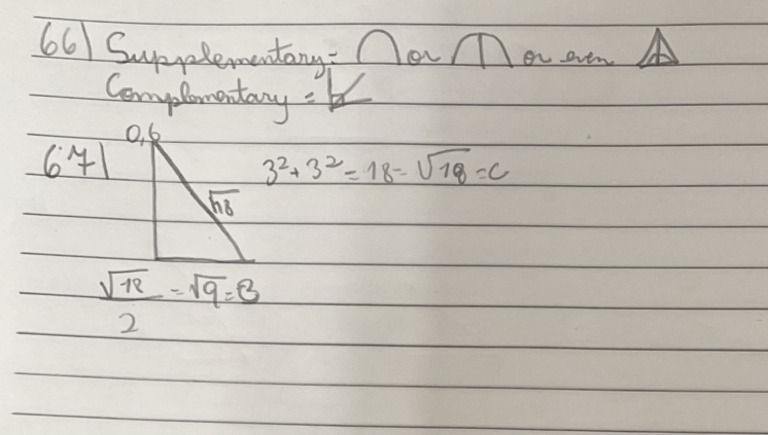 66) Supplementary: or or even
Complomentary =
67)
0,6
3²+3²=18=√18=C
√18
√18/2 =√9=3